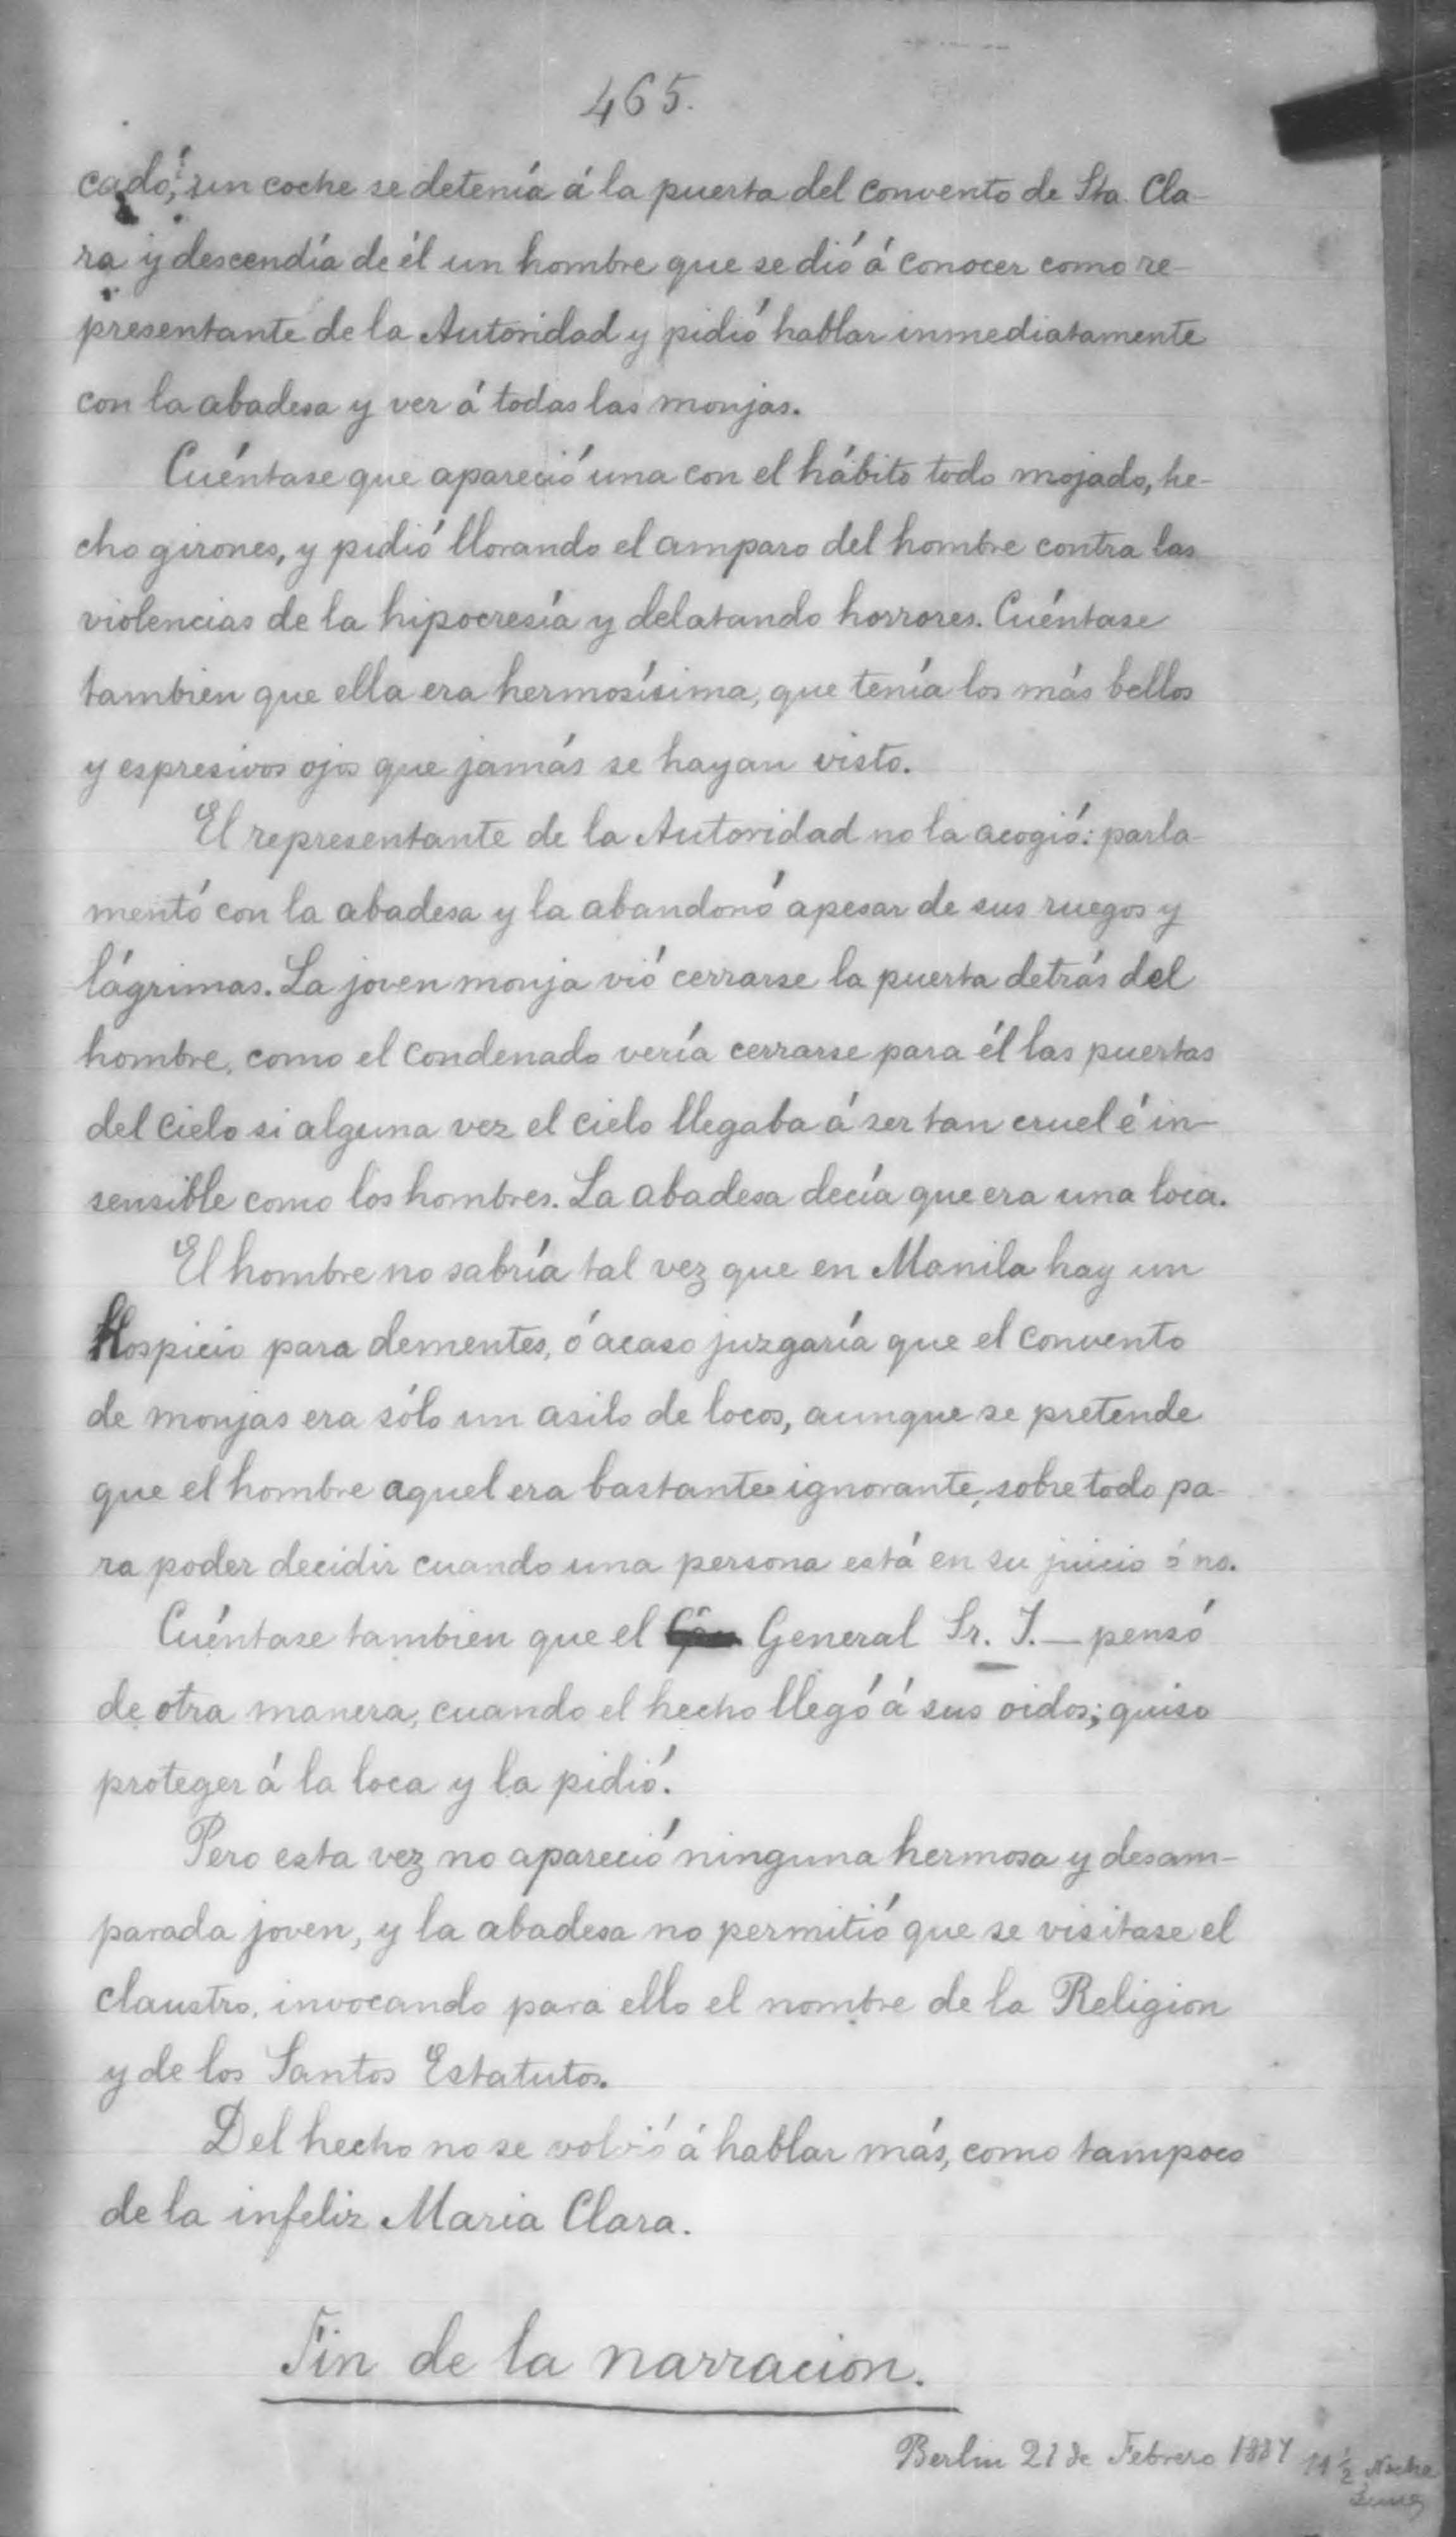 465.
cado, un coche se detenía á la puerta del convento de Sta. Cla-
ra y descendía de él un hombre que se dió á conocer como re-
presentante de la Autoridad y pidió hablar inmediatamente
con la abadesa y ver á todas las monjas.
Cuéntase que apareció una con el hábito todo mojado, he-
cho girones, y pidió llorando el amparo del hombre contra las
violencias de la hipocresía y delatando horrores. Cuéntase
tambien que ella era hermosísima, que tenía los más bellos
y espresivos ojos que jamás se hayan visto.
El representante de la Autoridad no la acogió: parla-
mentó con la abadesa y la abandonó apesar de sus ruegos y
lágrimas. La joven monja vió cerrarse la puerta detrás del
hombre, como el condenado vería cerrarse para él las puertas
del cielo si alguna vez el cielo llegaba á ser tan cruel é in-
sensible como los hombres. La abadesa decía que era una loca.
El hombre no sabría tal vez que en Manila hay un
Hospicio para dementes, ó acaso juzgaría que el convento
de monjas era sólo un asilo de locos, aunque se pretende
que el hombre aquel era bastante ignorante, sobre todo pa-
ra poder decidir cuando una persona está en su juicio ó no.
Cuéntase tambien que el General Sr. J.— pensó
de otra manera, cuando el hecho llegó á sus oidos; quiso
proteger á la loca y la pidió.
Pero esta vez no apareció ninguna hermosa y desam-
parada joven, y la abadesa no permitió que se visitase el
claustro, invocando para ello el nombre de la Religion
y de los Santos Estatutos.
Del hecho no se volvió á hablar más, como tampoco
de la infeliz Maria Clara.
Fin de la narracion.
Berlin 21 de Febrero 1887 11 1/2 Noche
Lunes